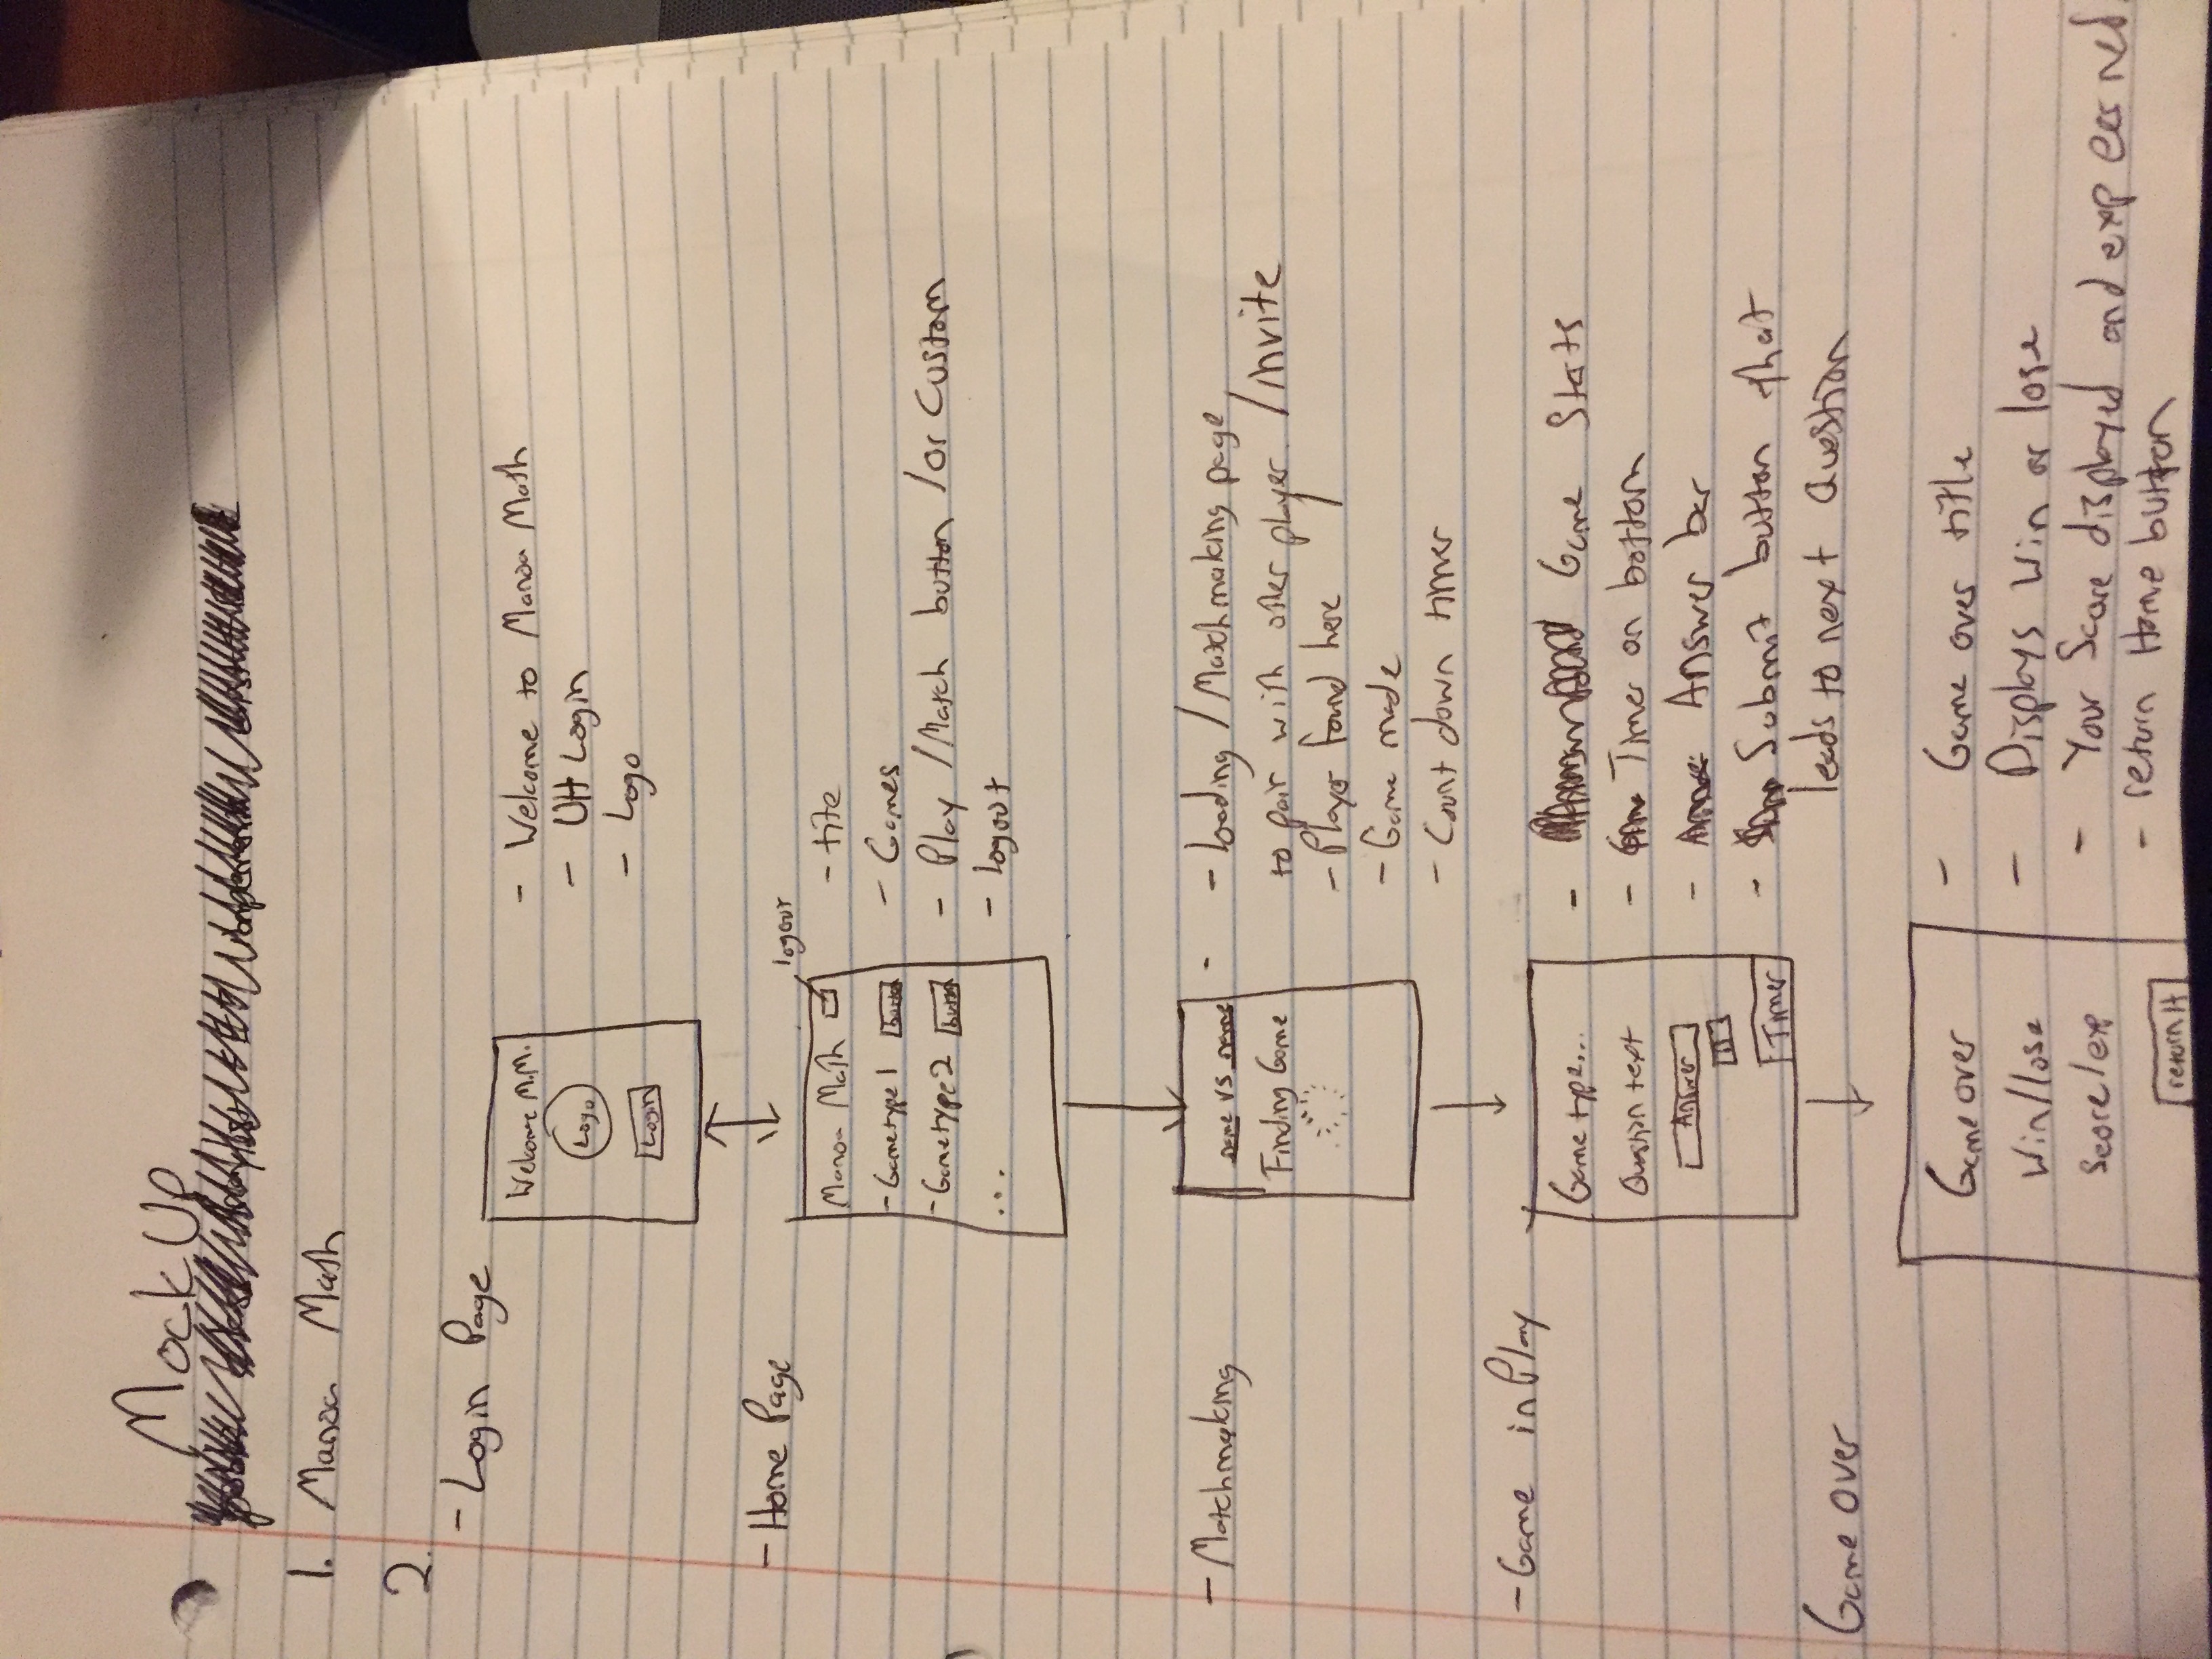 Mock Up
1. Manoa Math
2.
- Login Page
Welcome M.M.
Logo
Login
- Welcome to Manoa Math
- UH Login
- Logo
- Home Page
logout
Manoa Math
- Gametype 1 button
- Gametype 2 button
...
- tite
- Games
- Play / Match button / or Custom
- logout
- Matchmaking
name vs name
Finding Game
- loading / Matchmaking page
to pair with other player. / invite
- Player found here
- Game made
- Count down timer
- Game in Play
Game type...
Question text
Answer
Timer
- Game Starts
- Timer on bottom
- Answer bar
- Submit button that
leads to next Question
Game over
Game over
Win/lose
Score/exp
return H
- Game over title
- Displays Win or lose
- Your Score displayed and exp earned.
- return Home button